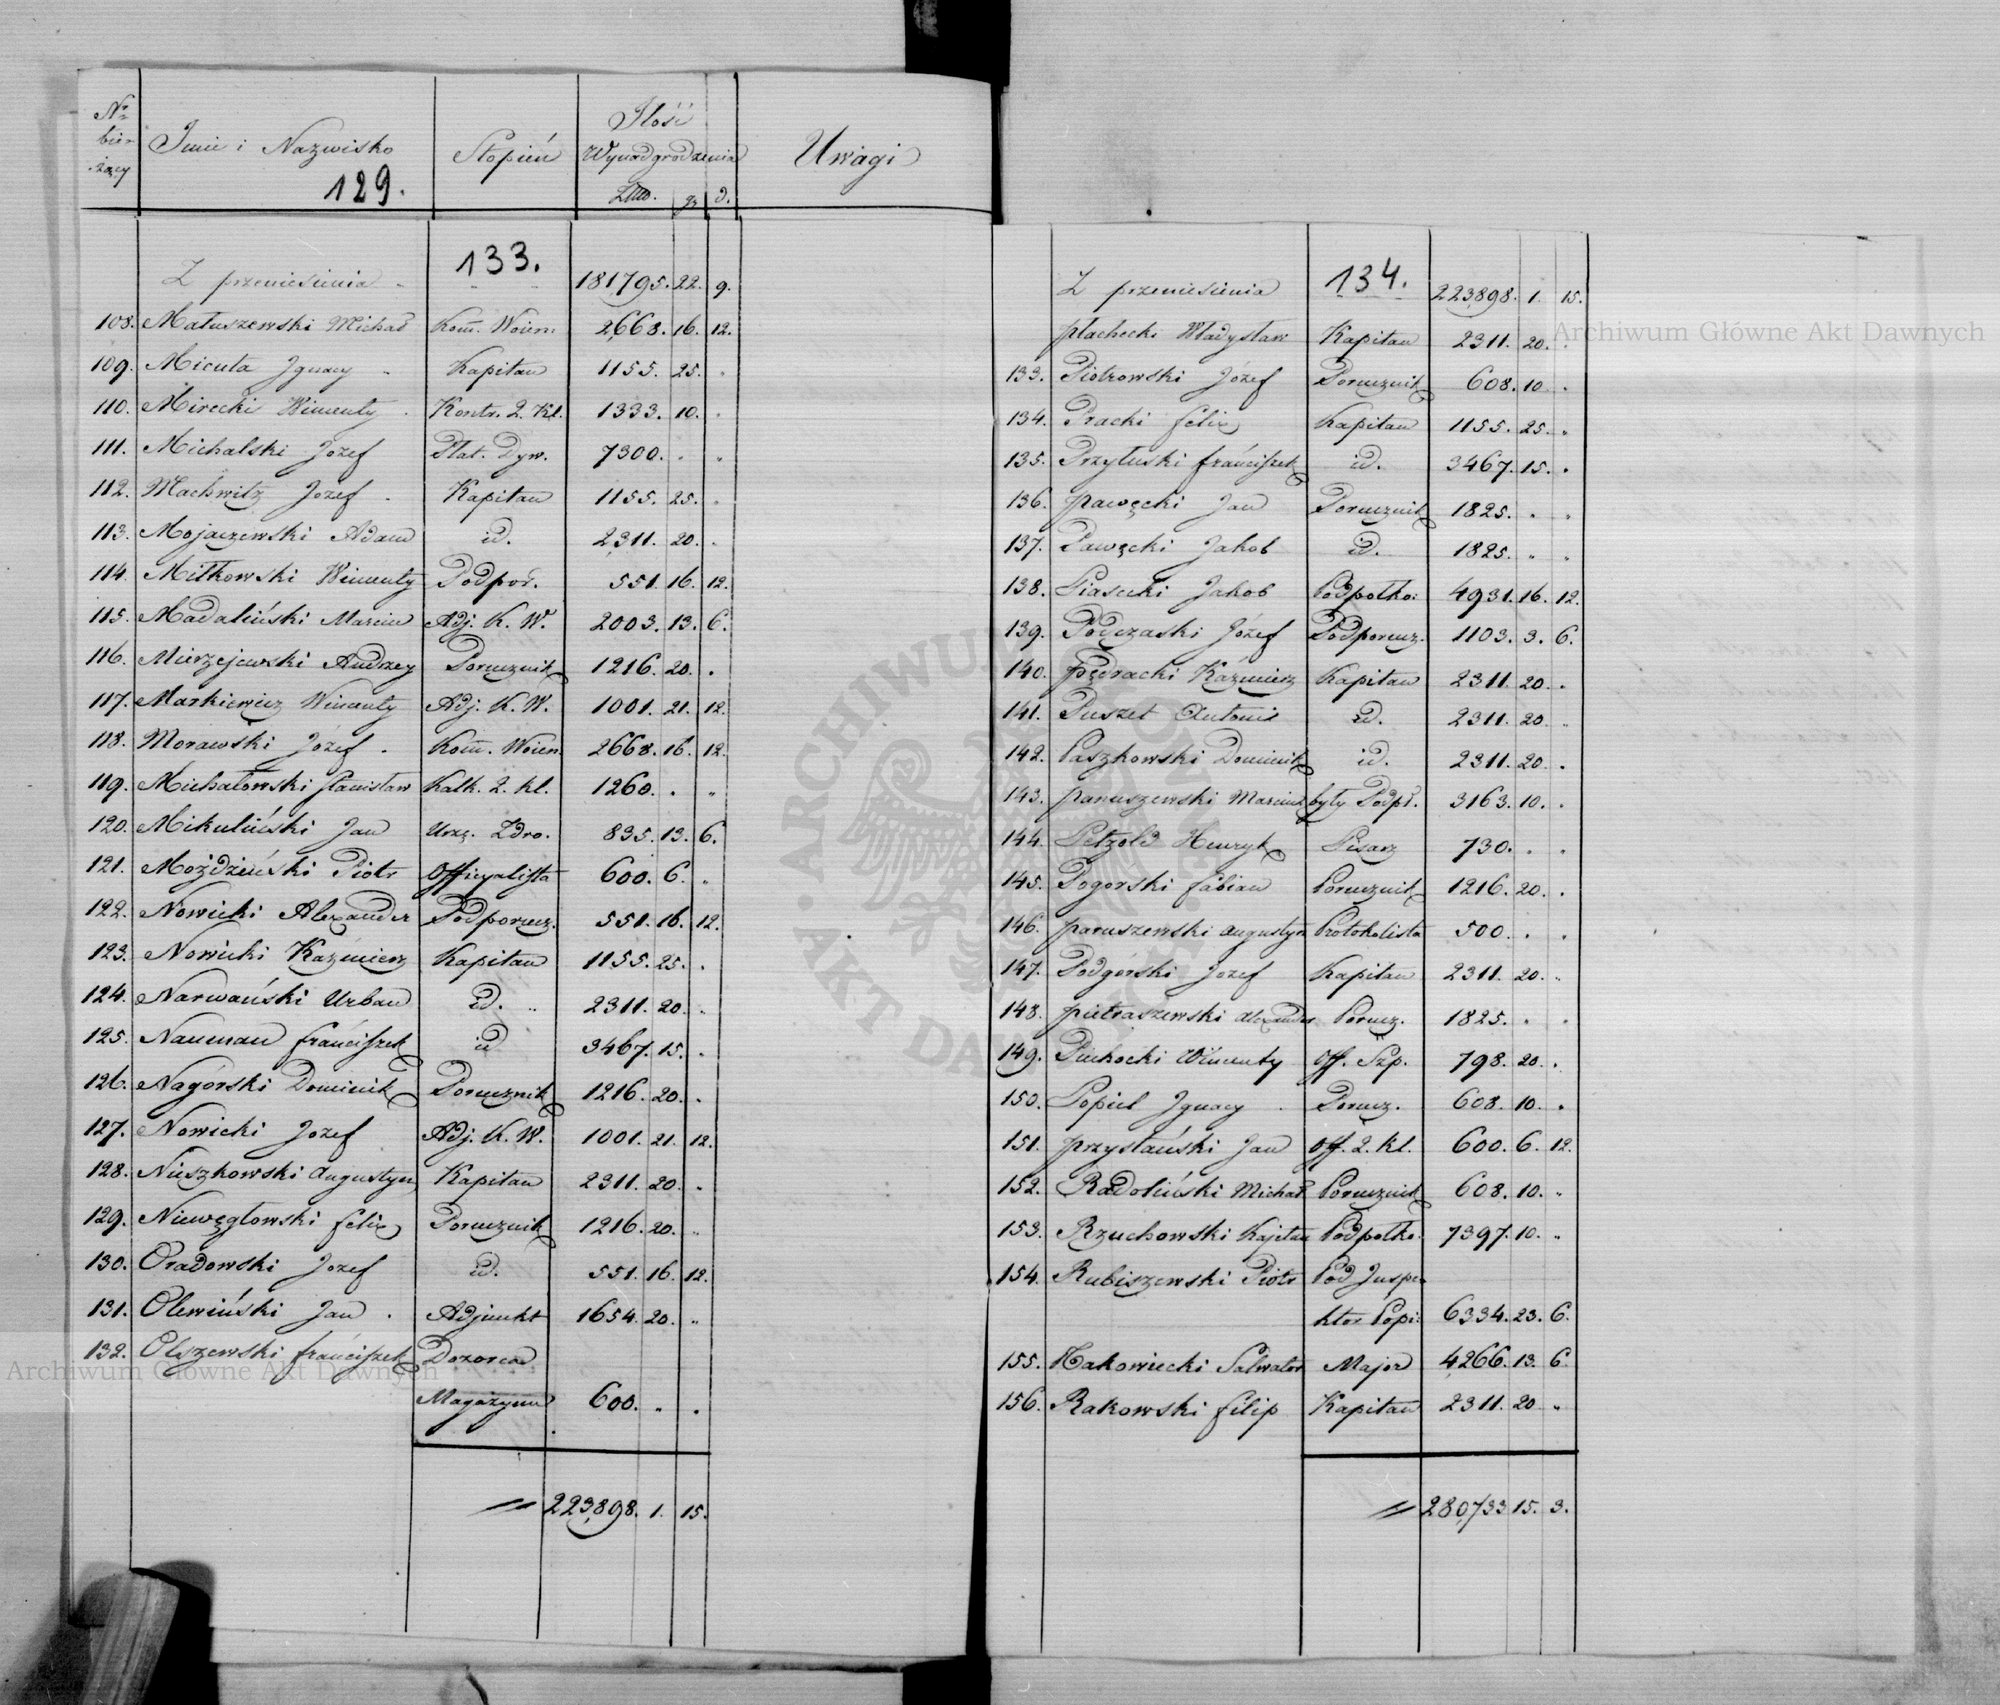 Nº bieżący Imie i Nazwisko Stopień Ilość Wynadgrodzenia Uwagi
129. gr d.
Z przeniesienia 133. 181795. 22. 9.
108. Matuszewski Michał Kom. Woien. 2668. 16. 12.
109. Micuta Jgnacy Kapitan 1155. 25.
110. Mirecki Wincenty Kontr. 2. Kl. 1333. 10.
111. Michalski Jozef Płat. Dyw. 7300.
112. Machwitz Jozef Kapitan 1155. 25.
113. Mojaczewski Adam id. 2311. 20.
114. Miłkowski Wincenty Podpor. 551. 16. 12.
115. Madaliński Marcin Adj. K. W. 2003. 13. 6.
116. Mierzejewski Andrzey Porucznik 1216. 20.
117. Markiewicz Wincenty Adj. K. W. 1001. 21. 12.
118. Morawski Józef Kom. Woien. 2668. 16. 12.
119. Michałowski Stanisław Kalk. 2. kl. 1260.
120. Mikuliński Jan Urzę. Zdro. 835. 13. 6.
121. Moździeński Piotr Officyalista 600. 6.
122. Nowicki Alexander Podporucz. 551. 16. 12.
123. Nowicki Kazimierz Kapitan 1155. 25.
124. Narwański Urban id. 2311. 20.
125. Nauman franciszek id 3467. 15.
126. Nagórski Dominik Porucznik 1216. 20.
127. Nowicki Jozef Adj. K. W. 1001. 21. 12.
128. Nieszkowski Augustyn Kapitan 2311. 20.
129. Niewęgłowski felix Porucznik 1216. 20.
130. Oradowski Jozef id. 551. 16. 12.
131. Olewiński Jan Adjunkt 1654. 20.
132. Olszewski franciszek Dozorca
Magazynu 600.
223,898. 1. 15.
Z przeniesienia 134. 223898. 1. 15.
Płachecki Władysław Kapitan 2311. 20.
133. Piotrowski Józef Porucznik 608. 10.
134. Pracki felix Kapitan 1155. 25.
135. Przyłuski franciszek id. 3467. 15.
136. Pawęcki Jan Porucznik 1825.
137. Pawęcki Jakob id. 1825.
138. Piasecki Jakob Podpołko: 4931. 16. 12.
139. Podczaski Józef Podporucz. 1103. 3. 6.
140. Pędracki Kazimierz Kapitan 2311. 20.
141. Puszet Antoni id. 2311. 20
142. Paszkowski Dominik id. 2311. 20.
143. Paruszewski Marcin były Podpł. 3163. 10.
144. Petzold Henryk Pisarz 730.
145. Pogorski fabian Porucznik 1216. 20.
146. Paruszewski Augustyn Protokolista 500.
147. Podgórski Jozef Kapitan 2311. 20.
148. Pietraszewski Alexander Porucz. 1825.
149. Piechocki Wincenty Off. Szp. 798. 20.
150. Popiel Jgnacy Porucz. 608. 10.
151. Przystański Jan Off. 2. kl. 600. 6. 12.
152. Radoliński Michał Porucznik 608. 10.
153. Rzuchowski Kajetan Podpołko. 7397. 10.
154. Rubiszewski Piotr Pod Jnspe
ktor Popi: 6334. 23. 6.
155. Rakowiecki Salwator Major 4266. 13. 6.
156. Rakowski filip Kapitan 2311. 20
280,733 15. 3.
Archiwum Główne Akt Dawnych
Archiwum Główne Akt Dawnych
ARCHIWUM GŁÓWNE AKT DAWNYCH